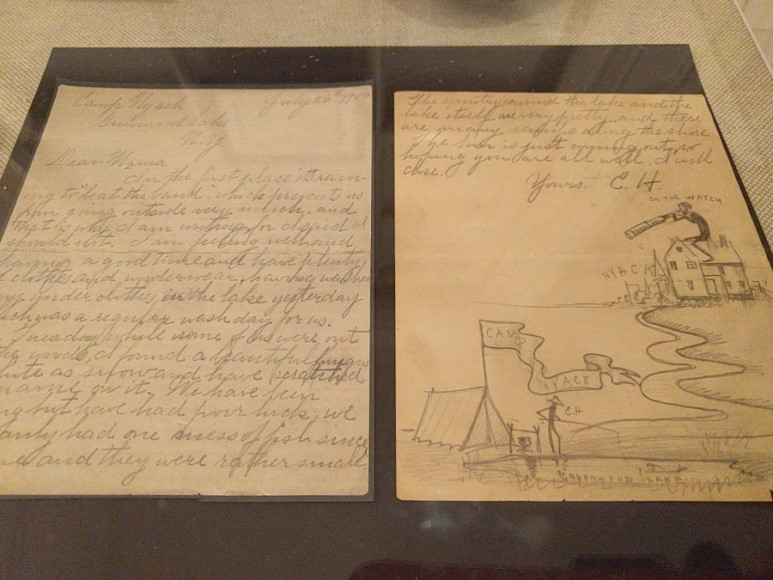 Camp Nyack
July 26th
Greenwood Lake
N.Y
Dear Mama
In the first place it's rain-
ing to "beat the band" which prevent us
from going outside very much, and
that is why I am writing, for I said I
should not. I am feeling well and
having a good time and have plenty
clothes and underwear, having washed
my underclothes in the lake yesterday
which was a regular wash day for us.
Tuesday while some of us were out
woods, I found a beautiful fungus
white as snow and have scratched
name on it. We have been
but have had poor luck, we
only had one mess of fish since
and they were rather small
The country around the lake and the
lake itself are very pretty and there
are many camps along the shore
The sun is just coming out, so
hoping you are all well, I will
close.
Yours. E. H.
ON THE WATCH
NYACK
CAMP
NYACK
E.H
GREENWOOD LAKE